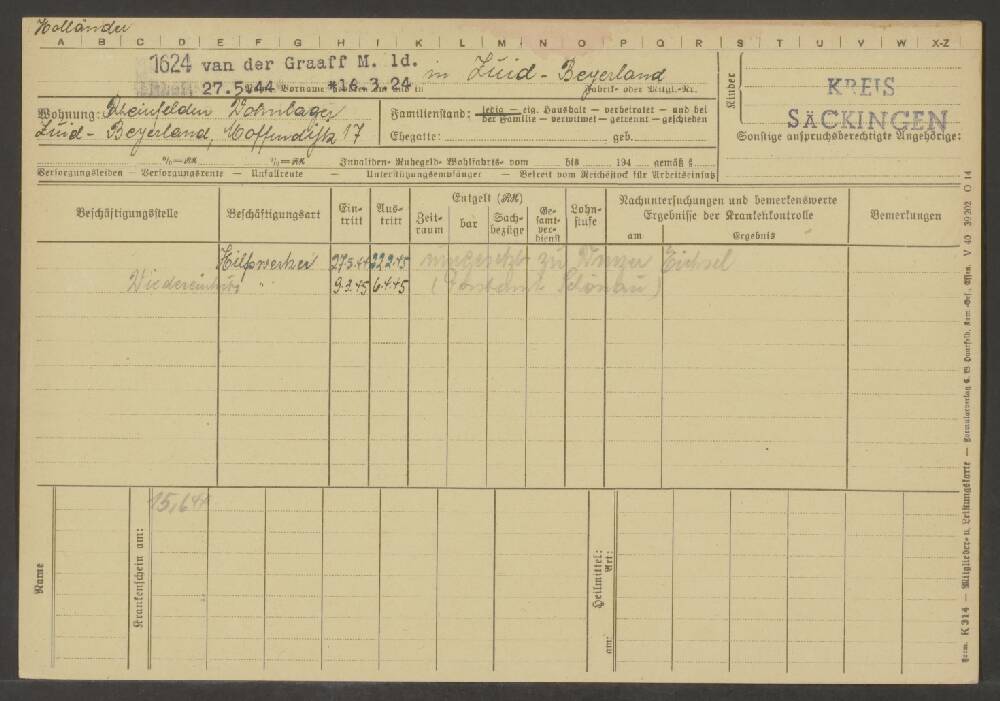 Holländer
A B C D E F G H I K L M N O P Q R S T U V W X-Z
1624 van der Graaff M. ld.
27.5.44 *18.3.24 in Zuid-Beyerland
Fabrik- oder Mitgl.-Nr.
Kinder
KREIS
SÄCKINGEN
Wohnung: Rheinfelden Wohnlager
Zuid-Beyerland,
17
Familienstand: ledig — eig. Haushalt — verheiratet — und bei
der Familie — verwitwet — getrennt — geschieden
Ehegatte: geb.
Sonstige anspruchsberechtigte Angehörige:
%=RM %=RM Invaliden- Ruhegeld- Wohlfahrts- vom bis 194 gemäß §
Versorgungsleiden — Versorgungsrente — Unfallrente — Unterstützungsempfänger — Befreit vom Reichsstock für Arbeitseinsatz
Beschäftigungsstelle
Beschäftigungsart
Ein-
tritt
Aus-
tritt
Entgelt (RM)
Zeit-
raum
bar
Sach-
bezüge
Ge-
samt-
ver-
dienst
Lohn-
stufe
Nachuntersuchungen und bemerkenswerte
Ergebnisse der Krankenkontrolle
am Ergebnis
Bemerkungen
Hilfswerker 27.5.44 22.2.45 umgesetzt zu Eichsel
Wiedereintritt " 9.3.45 6.4.45 (Forstamt Schönau)
Name
Krankenschein am:
15.6.44
Heilmittel:
Art:
am:
Form. K 314 — Mitglieder- u. Leistungskarte — Formularverlag V 40 39202 O 14